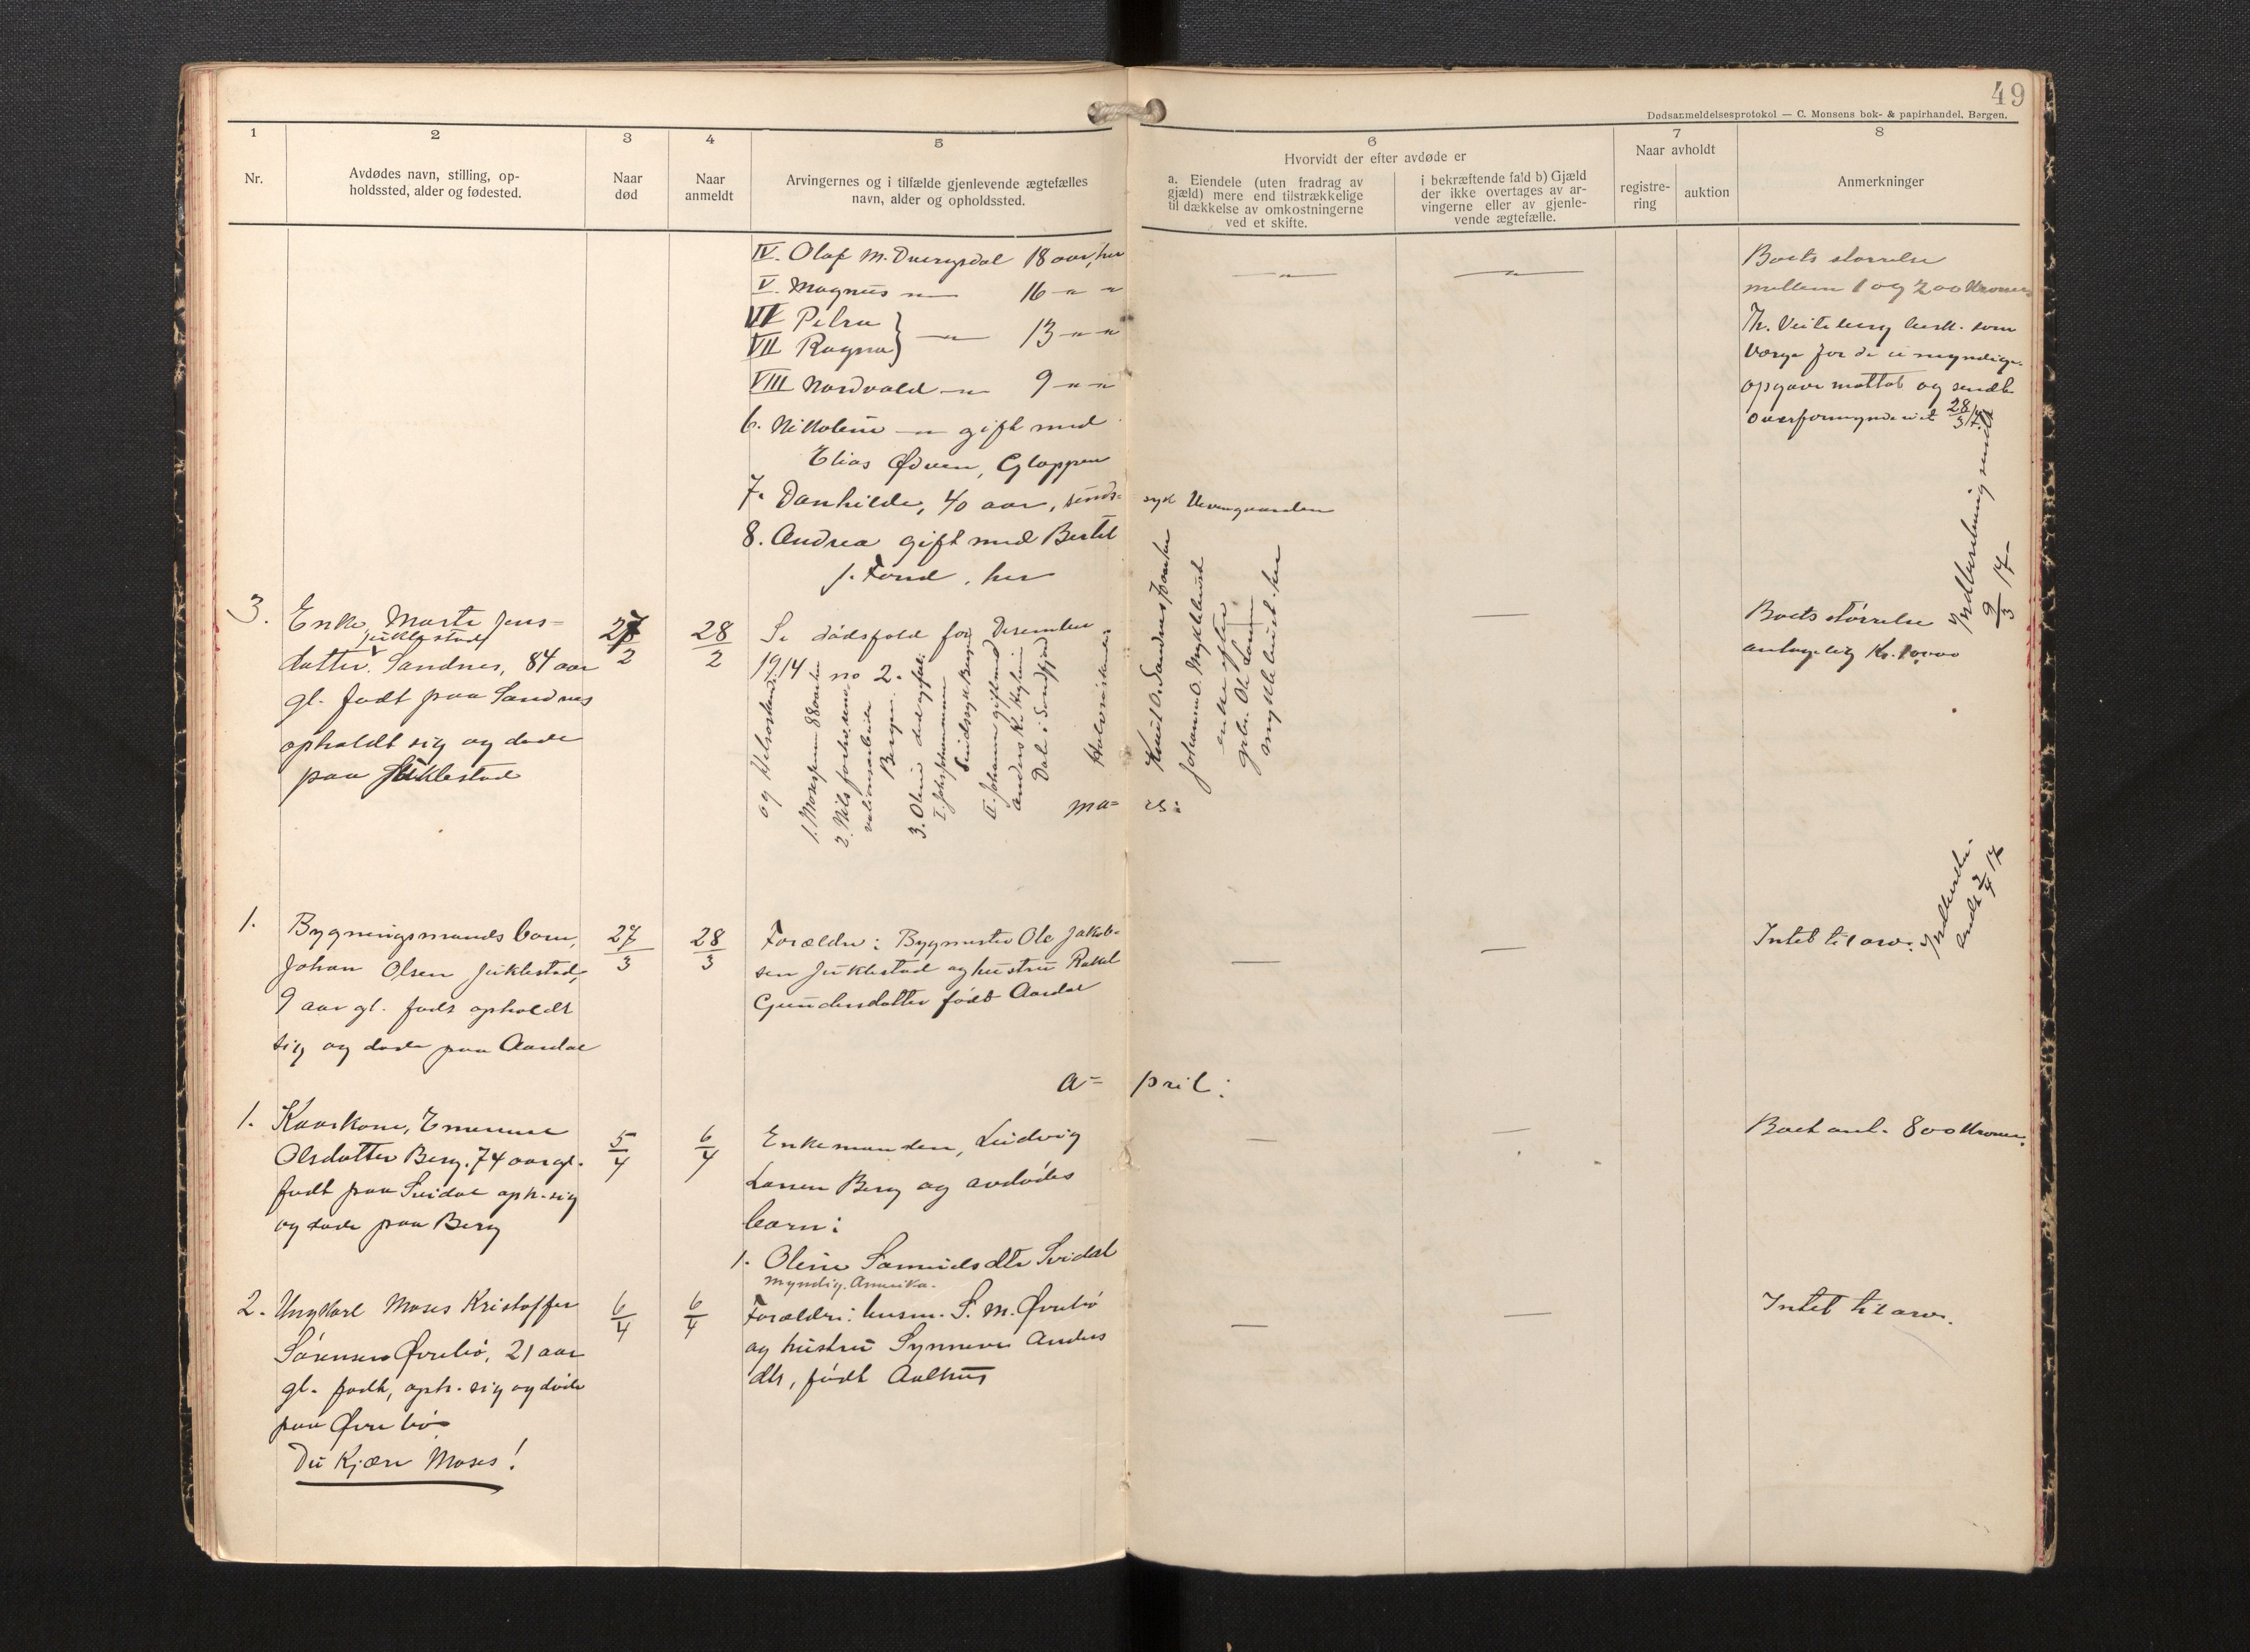 49
Dødsanmeldelsesprotokol — C. Monsens bok- & papirhandel, Bergen.
1
Nr.
2
Avdødes navn, stilling, op-
holdssted, alder og fødested.
3
Naar
død
4
Naar
anmeldt
5
Arvingernes og i tilfælde gjenlevende ægtefælles
navn, alder og opholdssted.
6
Hvorvidt der efter avdøde er
a. Eiendele (uten fradrag av
gjæld) mere end tilstrækkelige
til dækkelse av omkostningerne
ved et skifte.
i bekræftende fald b) Gjæld
der ikke overtages av ar-
vingerne eller av gjenle-
vende ægtefælle.
7
Naar avholdt
registre-
ring
auktion
8
Anmerkninger
IV. Olaf M. 18 aar, her
V. Magnus —"— 16 —"— "
VI Petra
VII Ragna } —"— 13 —"— "
VIII Nordvald —"— 9 —"— "
6. Nikoline —"— gift med
Elias Ødven, Gloppen
7. Danhilde, 40 aar, sinds=
syk
8. Andrea gift med Bertel
J. Fond, her
Boets størrelse
mellem 1 og 200 Kroner
Th. besk. som
Værge for de umyndige.
opgave mottat og sendt
overformynderiet 28/3 17
Indberetning sendt
9/3 17
3. Enke, Marte Jens=
Juklestad
datter Sandnes, 84 aar
gl. født paa Sandnes
opholdt sig og døde
paa Juklestad
27/2
28/2
Se dødsfald for Desember
1914 no 2.
og Helsøskende
1. Mons 88 aar her
2. Nils
Bergen.
3. Oline død
Sindssyk Bergen
II. Johanne gift med
Anders K.
Dale i Søndfjord
Halvsøskende
Knut O. Sandnes, her
Johanne O. Myklebust
enke efter
gbr. Ole Larsen
Myklebust. her
Boets størrelse
antagelig Kr. 10000
Ma= rs:
1. Bygningsmands barn,
Johan Olsen Juklestad,
9 aar gl. født opholdt
sig og døde paa Aardal
27/3
28/3
Forældre: Bygmester Ole Jakob-
sen Juklestad og hustru Rakel
Gundersdatter født Aardal
Intet til arv.
Indberetn.
sendt 2/4 17
A= pril:
1. Kaarkone,
Olsdatter Berg, 74 aar gl.
født paa Svidal oph. sig
og døde paa Berg
5/4
6/4
Enkemanden, Ludvig
Larsen Berg og avdødes
barn:
1. Oline Samuelsdtr Svidal
myndig. Amerika.
Boet ant. 800 Kroner.
2. Ungkarl Moses Kristoffer
Sørensen Øvrebø, 21 aar
gl. født, oph. sig og døde
paa Øvrebø
Du Kjære Moses!
6/4
6/4
Forældre: husm. S. M. Øvrebø
og hustru Synneve Anders
dtr, født Aalhus
Intet til arv.